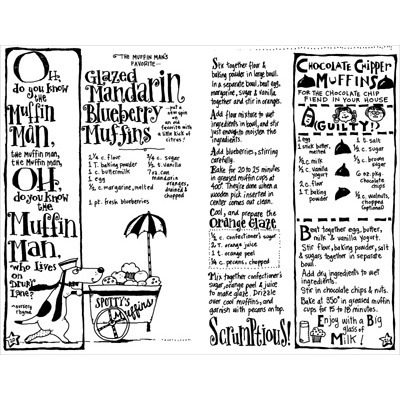 Oh,
do you know
the
Muffin
Man,
the muffin man,
the muffin man,
Oh,
do you know
the
Muffin
Man,
who lives
on
Drury
Lane?
~nursery
rhyme
~THE MUFFIN MAN'S
FAVORITE~
Glazed
Mandarin
Blueberry
Muffins
~put a
new spin
on
an old
favorite with
a little kick of
citrus!
2 c. flour
1 T. baking powder
1 c. buttermilk
1 egg
½ c. margarine, melted
1 pt. fresh blueberries
¾ c. sugar
½ t. vanilla
7 oz. can
mandarin
oranges,
drained &
chopped
SPOTTY'S
Muffins
Stir together flour &
baking powder in large bowl.
In a separate bowl, beat egg,
margarine, sugar & vanilla
together and stir in oranges.
Add flour mixture to wet
ingredients in bowl, and stir
just enough to moisten the
ingredients.
Add blueberries, stirring
carefully.
Bake for 20 to 25 minutes
in greased muffin cups at
400°. They're done when a
wooden pick inserted in
center comes out clean.
Cool, and prepare the
Orange Glaze
½ c. confectioner's sugar
2 t. orange juice
1 t. orange peel
¼ c. pecans, chopped
Mix together confectioner's
sugar, orange peel & juice
to make glaze. Drizzle
over cool muffins, and
garnish with pecans on top.
Scrumptious!
CHOCOLATE CHIPPER
MUFFINS
FOR THE CHOCOLATE CHIP
FIEND IN YOUR HOUSE
(GUILTY?)
1 egg
1 stick butter,
melted
½ c. milk
½ c. vanilla
yogurt
2 c. flour
1 T. baking
powder
1 t. salt
½ c. sugar
½ c. brown
sugar
6 oz. pkg.
chocolate
chips
½ c. walnuts,
chopped
(optional)
Beat together egg, butter,
milk & vanilla yogurt.
Stir flour, baking powder, salt
& sugars together in separate
bowl.
Add dry ingredients to wet
ingredients.
Stir in chocolate chips & nuts.
Bake at 350° in greased muffin
cups for 15 to 18 minutes.
Enjoy with a Big
glass of
Milk!